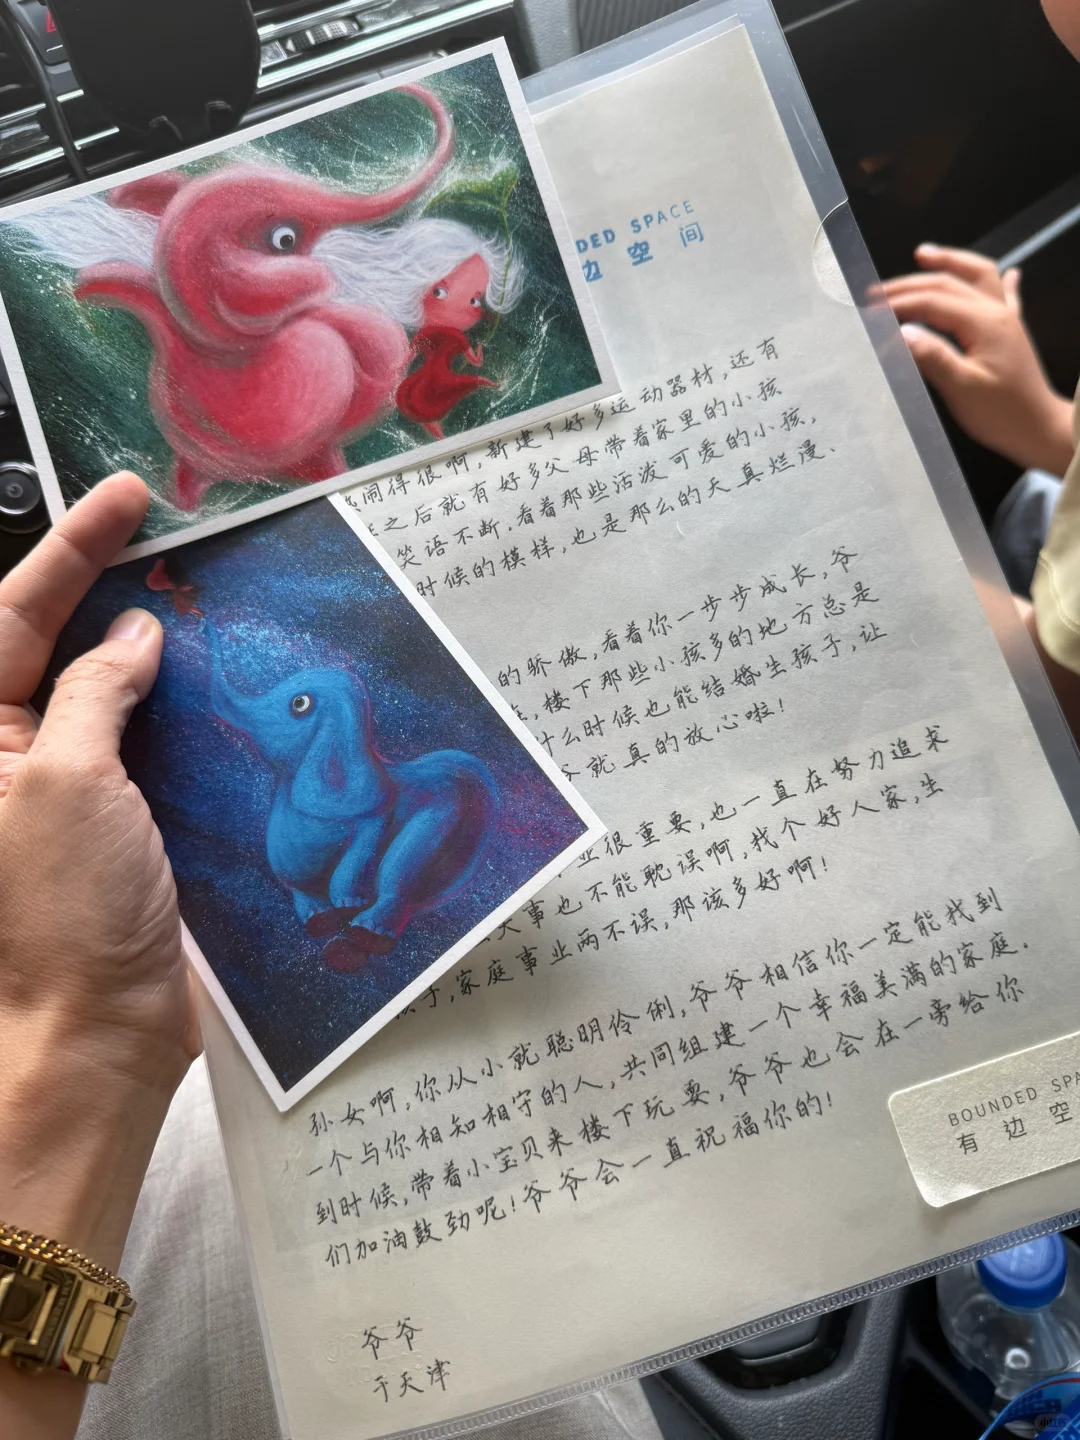 DED SPACE
边空间
闹得很啊,新建了好多运动器材,还有
之后就有好多父母带着家里的小孩
笑语不断.看着那些活泼可爱的小孩,
时候的模样,也是那么的天真烂漫.
的骄傲,看着你一步步成长,爷
,楼下那些小孩多的地方总是
什么时候也能结婚生孩子,让
就真的放心啦!
业很重要,也一直在努力追求
大事也不能耽误啊,找个好人家,生
子,家庭事业两不误,那该多好啊!
孙女啊,你从小就聪明伶俐,爷爷相信你一定能找到
一个与你相知相守的人,共同组建一个幸福美满的家庭.
到时候,带着小宝贝来楼下玩耍,爷爷也会在一旁给你
们加油鼓劲呢!爷爷会一直祝福你的!
爷爷
于天津
BOUNDED SPA
有边空
小红书